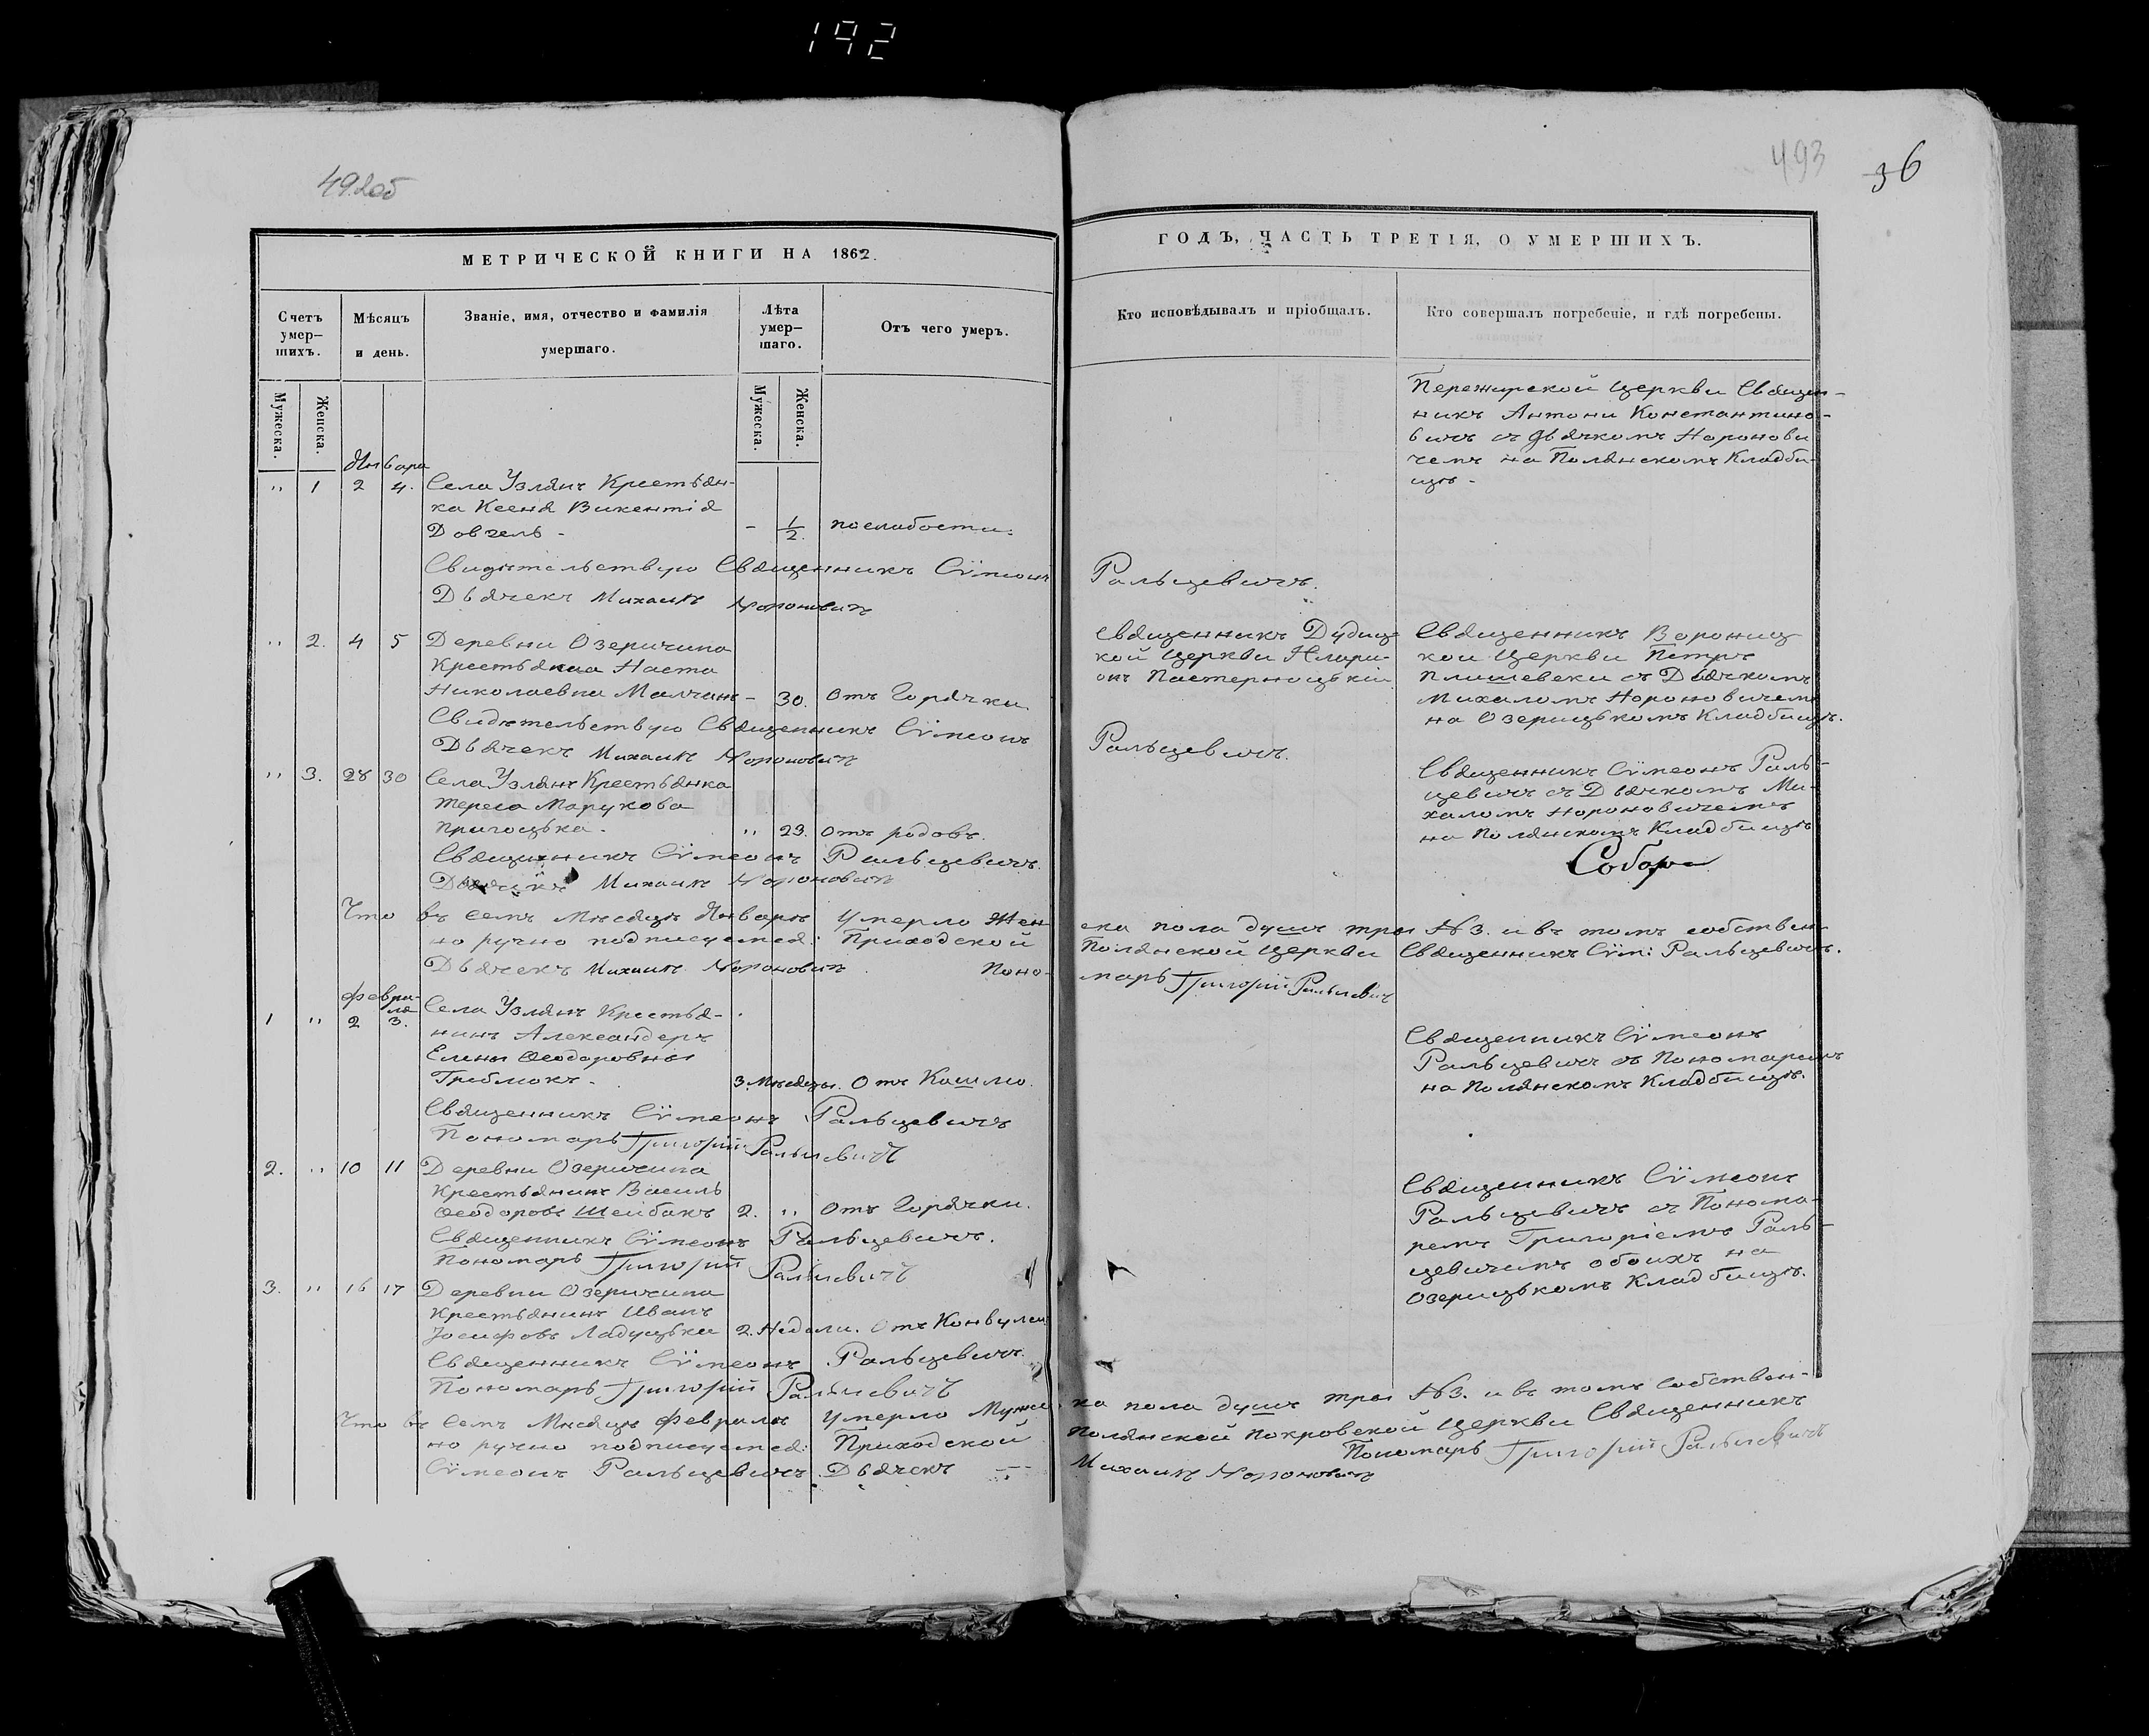 192
492об
493
36
МЕТРИЧЕСКОЙ КНИГИ НА 1862.
ГОДЪ, ЧАСТЬ ТРЕТІЯ, О УМЕРШИХЪ.
Счетъ умер-
шихъ.
Мѣсяцъ
и день.
Званіе, имя, отчество и фамилія
умершаго.
Лѣта
умер-
шаго.
Отъ чего умеръ.
Кто исповѣдывалъ и пріобщалъ.
Кто совершалъ погребеніе, и гдѣ погребены.
Мужеска.
Женска.
Мужеска.
Женска.
Января
" 1 2 4. Села Узлянъ Крестьян-
ка Ксеня Викентія
Довгель - - 1/2. по слабости.
Пережирской Церкви Священ-
никъ Антони Константино-
вичъ съ дьячкомъ Нороново-
чемъ на Полянскомъ Кладби-
щѣ -
Свидѣтельствую Священникъ Сѵмеонъ Ральцевичъ.
Дьячекъ Михаилъ Нороновичъ
" 2. 4 5 Деревни Озеричина
Крестьянка Наста
Николаевна Малчанъ - 30. Отъ Горячки.
Священникъ Дудиц-
кой Церкви Илари-
онъ Пастернацкій
СвященникъВорониц-
кой Церкви Петръ
Плышевски съ Дьячкомъ
Михаломъ Нороновичемъ
на Озерицькомъ Кладбищѣ.
Свидѣтельствую Священникъ Сѵмеонъ Ральцевичъ.
Дьячекъ Михаилъ Нороновичъ
" 3. 28 30 Села Узлянъ Крестьянка
Тереса Марукова
Пригоцька. " 29. отъ родовъ.
Священникъ Сѵмеонъ Раль-
цевичъ съ Дьячкомъ Ми-
халомъ Нороновичемъ
на Полянскомъ Кладбищѣ
Священникъ Сѵмеонъ Ральцевичъ.
Дьячекъ Михаилъ Нороновичъ
Что въ семъ Мѣсяцѣ Январѣ Умерло Жен-
ска пола душъ три №3. и въ томъ собствен-
но ручно подписуемся: Приходской
Полянской Церкви Священникъ Сѵм: Ральцевичъ.
Дьячекъ Михаилъ Нороновичъ Поно-
марь Григорій Ральцевичъ
Февра-
ля
1 " 2 3. Села Узлянъ Крестья-
нинъ Александеръ
Елены Ѳеодоровны
Грибмокъ. 3. Мѣсяцы. Отъ Кашлю.
Священникъ Сѵмеонъ
Ральцевичъ съ Пономаремъ
на Полянскомъ Кладбищѣ.
Священникъ Сѵмеонъ Ральцевичъ
Пономарь Григорій Ральцевичъ
2. " 10 11 Деревни Озеричина
Крестьянинъ Василь
Ѳеодоровъ Шейбакъ 2. " Отъ Горячки.
Священникъ Сѵмеонъ Ральцевичъ.
Пономарь Григорій Ральцевичъ
Священникъ Сѵмеонъ
Ральцевичъ съ Понома-
ремъ Григоріемъ Раль-
цевичемъ обоихъ на
Озерицькомъ Кладбищѣ.
3. " 16 17 Деревни Озеричина
Крестьянинъ Иванъ
Іосифовъ Ладуцьки 2. Недели. Отъ Конвулси
Священникъ Сѵмеонъ Ральцевичъ.
Пономарь Григорій Ральцевичъ
Что въ семъ Мѣсяцѣ Февралѣ Умерло Мужес-
ка пола душъ три №3. и въ томъ собствен-
но ручно подписуемся: Приходской
Полянской Покровской Церкви Священникъ
Сѵмеонъ Ральцевичъ. Дьячекъ
Михаилъ Нороновичъ Пономарь Григорій Ральцевичъ